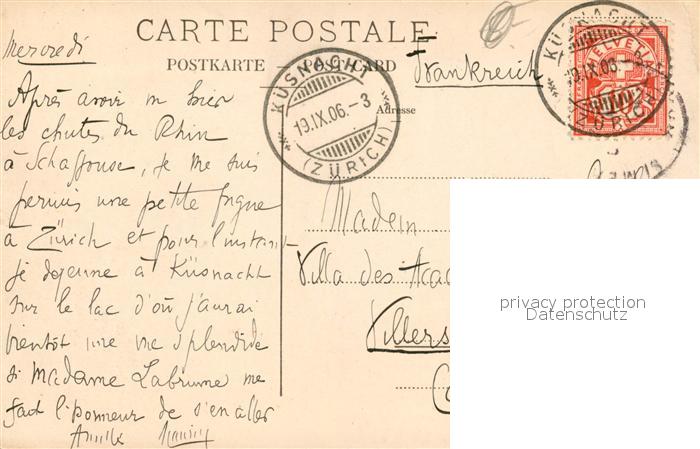 CARTE POSTALE
POSTKARTE — POST-CARD
Frankreich
Adresse
KÜSNACHT
19.IX.06.-3
(ZÜRICH)
KÜSNACHT
19.IX.06.-3
(ZÜRICH)
HELVETIA
Mercredi
Après avoir vu hier
les chutes du Rhin
à Schaffouse, je me suis
permis une petite fugue
à Zürich et pour l'instant
je dejeune à Küsnacht
sur le lac d'où j'aurai
bientôt une vue splendide
si Madame Labrume me
fait l'honneur de s'en aller
Madem
Villa des Acac
Villers
privacy protection
Datenschutz